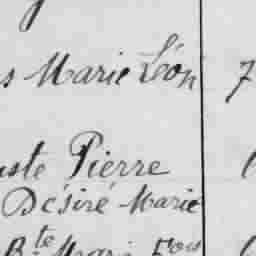 s Marie Léon 7
uste Pierre
Désiré Marie
Bte Mari Fois